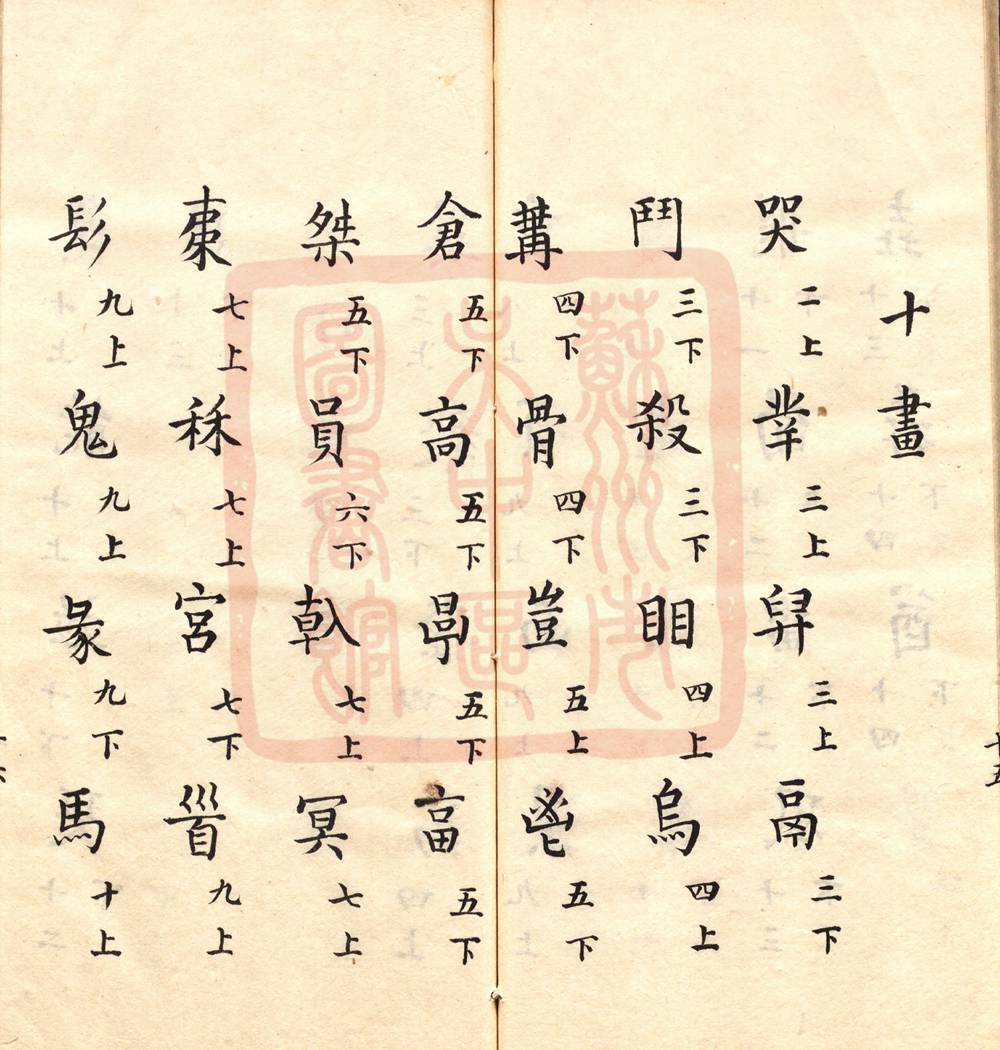 十畫
哭 二上 丵 三上 舁 三上 鬲 三下
鬥 三下 殺 三下 䀠 四上 烏 四上
冓 四下 骨 四下 豈 五上 鬯 五下
倉 五下 高 五下 五下 畗 五下
桀 五下 員 六下 倝 七上 冥 七上
七上 秝 七上 宮 七下 𩠐 九上
髟 九上 鬼 九上 九下 馬 十上